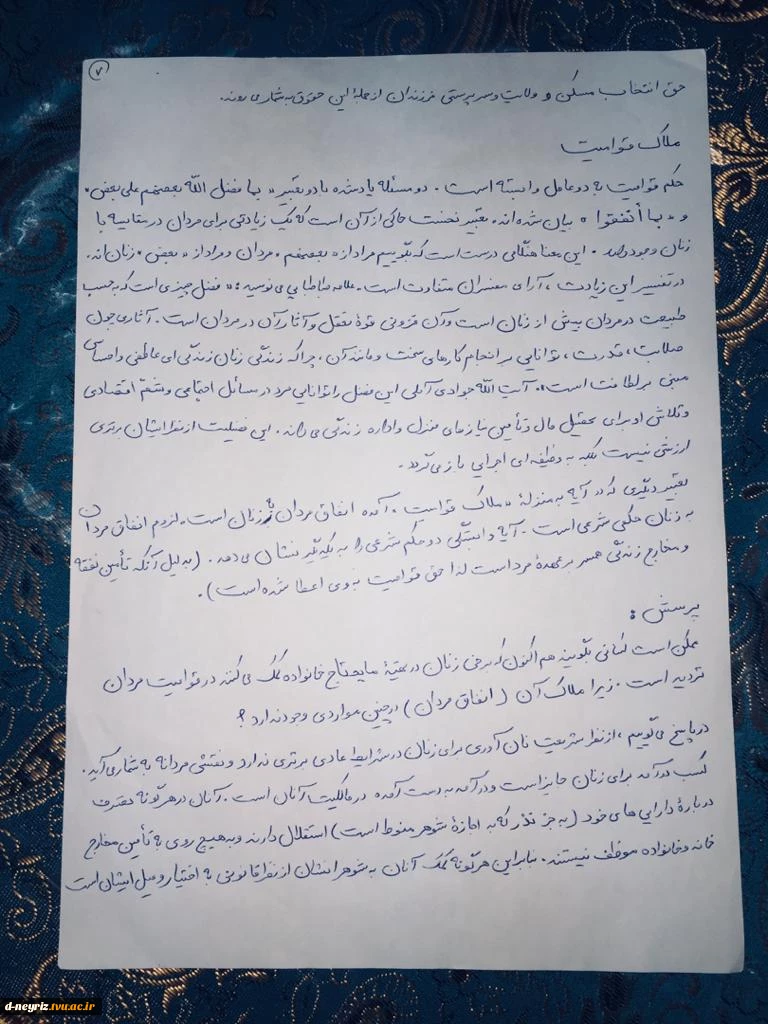 ۷
حق انتخاب مسکن و ولایت و سرپرستی فرزندان از جمله این حقوق به شمار می روند.
ملاک قوامیت
حکم قوامیت به دو عامل وابسته است. دو مسئله یادشده با دو تعبیر «بما فضل الله بعضهم علی بعض»
و «بما أنفقوا» بیان شده اند. تعبیر نخست حاکی از آن است که یک زیادتی برای مردان در مقایسه با
زنان وجود دارد. این معنا هنگامی درست است که بگوییم مراد از «بعضهم» مردان و مراد از «بعض» زنان اند.
در تفسیر این زیادت، آرای مفسران متفاوت است. علامه طباطبایی می نویسد: «فضل چیزی است که به حسب
طبیعت در مردان بیش از زنان است و آن فزونی قوهٔ تعقل و آثار آن در مردان است. آثاری چون
صلابت، قدرت، توانایی بر انجام کارهای سخت و مانند آن، چراکه زندگی زنان زندگی ای عاطفی و احساسی
مبنی بر لطافت است». آیت الله جوادی آملی این فضل را توانایی مرد در مسائل اجتماعی و شمّ اقتصادی
و تلاش او برای تحصیل مال و تأمین نیازهای منزل و اداره زندگی می داند. این فضیلت از نظر ایشان برتری
ارزشی نیست بلکه به وظیفه ای اجرایی باز می گردد.
تعبیر دیگری که در آیه به منزلهٔ «ملاک قوامیت» آمده انفاق مردان به زنان است. لزوم انفاق مردان
به زنان حکمی شرعی است. آیه وابستگی دو حکم شرعی را به یکدیگر نشان می دهد. (به دلیل آنکه تأمین نفقه
و مخارج زندگی همسر بر عهدهٔ مرد است لذا حق قوامیت به وی اعطا شده است).
پرسش:
ممکن است کسانی بگویند هم اکنون که برخی زنان در تهیهٔ مایحتاج خانواده کمک می کنند در قوامیت مردان
تردید است. زیرا ملاک آن (انفاق مردان) در چنین مواردی وجود ندارد؟
در پاسخ می گوییم، از نظر شریعت نان آوری برای زنان در شرایط عادی برتری ندارد و نقشی مردانه به شمار می آید.
کسب درآمد برای زنان جایز است و درآمد به دست آمده در مالکیت آنان است. آنان در هرگونه تصرف
دربارهٔ دارایی های خود (به جز نذر که به اجازهٔ شوهر منوط است) استقلال دارند و به هیچ روی به تأمین مخارج
خانه و خانواده موظف نیستند. بنابراین هرگونه کمک آنان به شوهرانشان از نظر قانونی به اختیار و میل ایشان است
d-neyriz.tvu.ac.ir